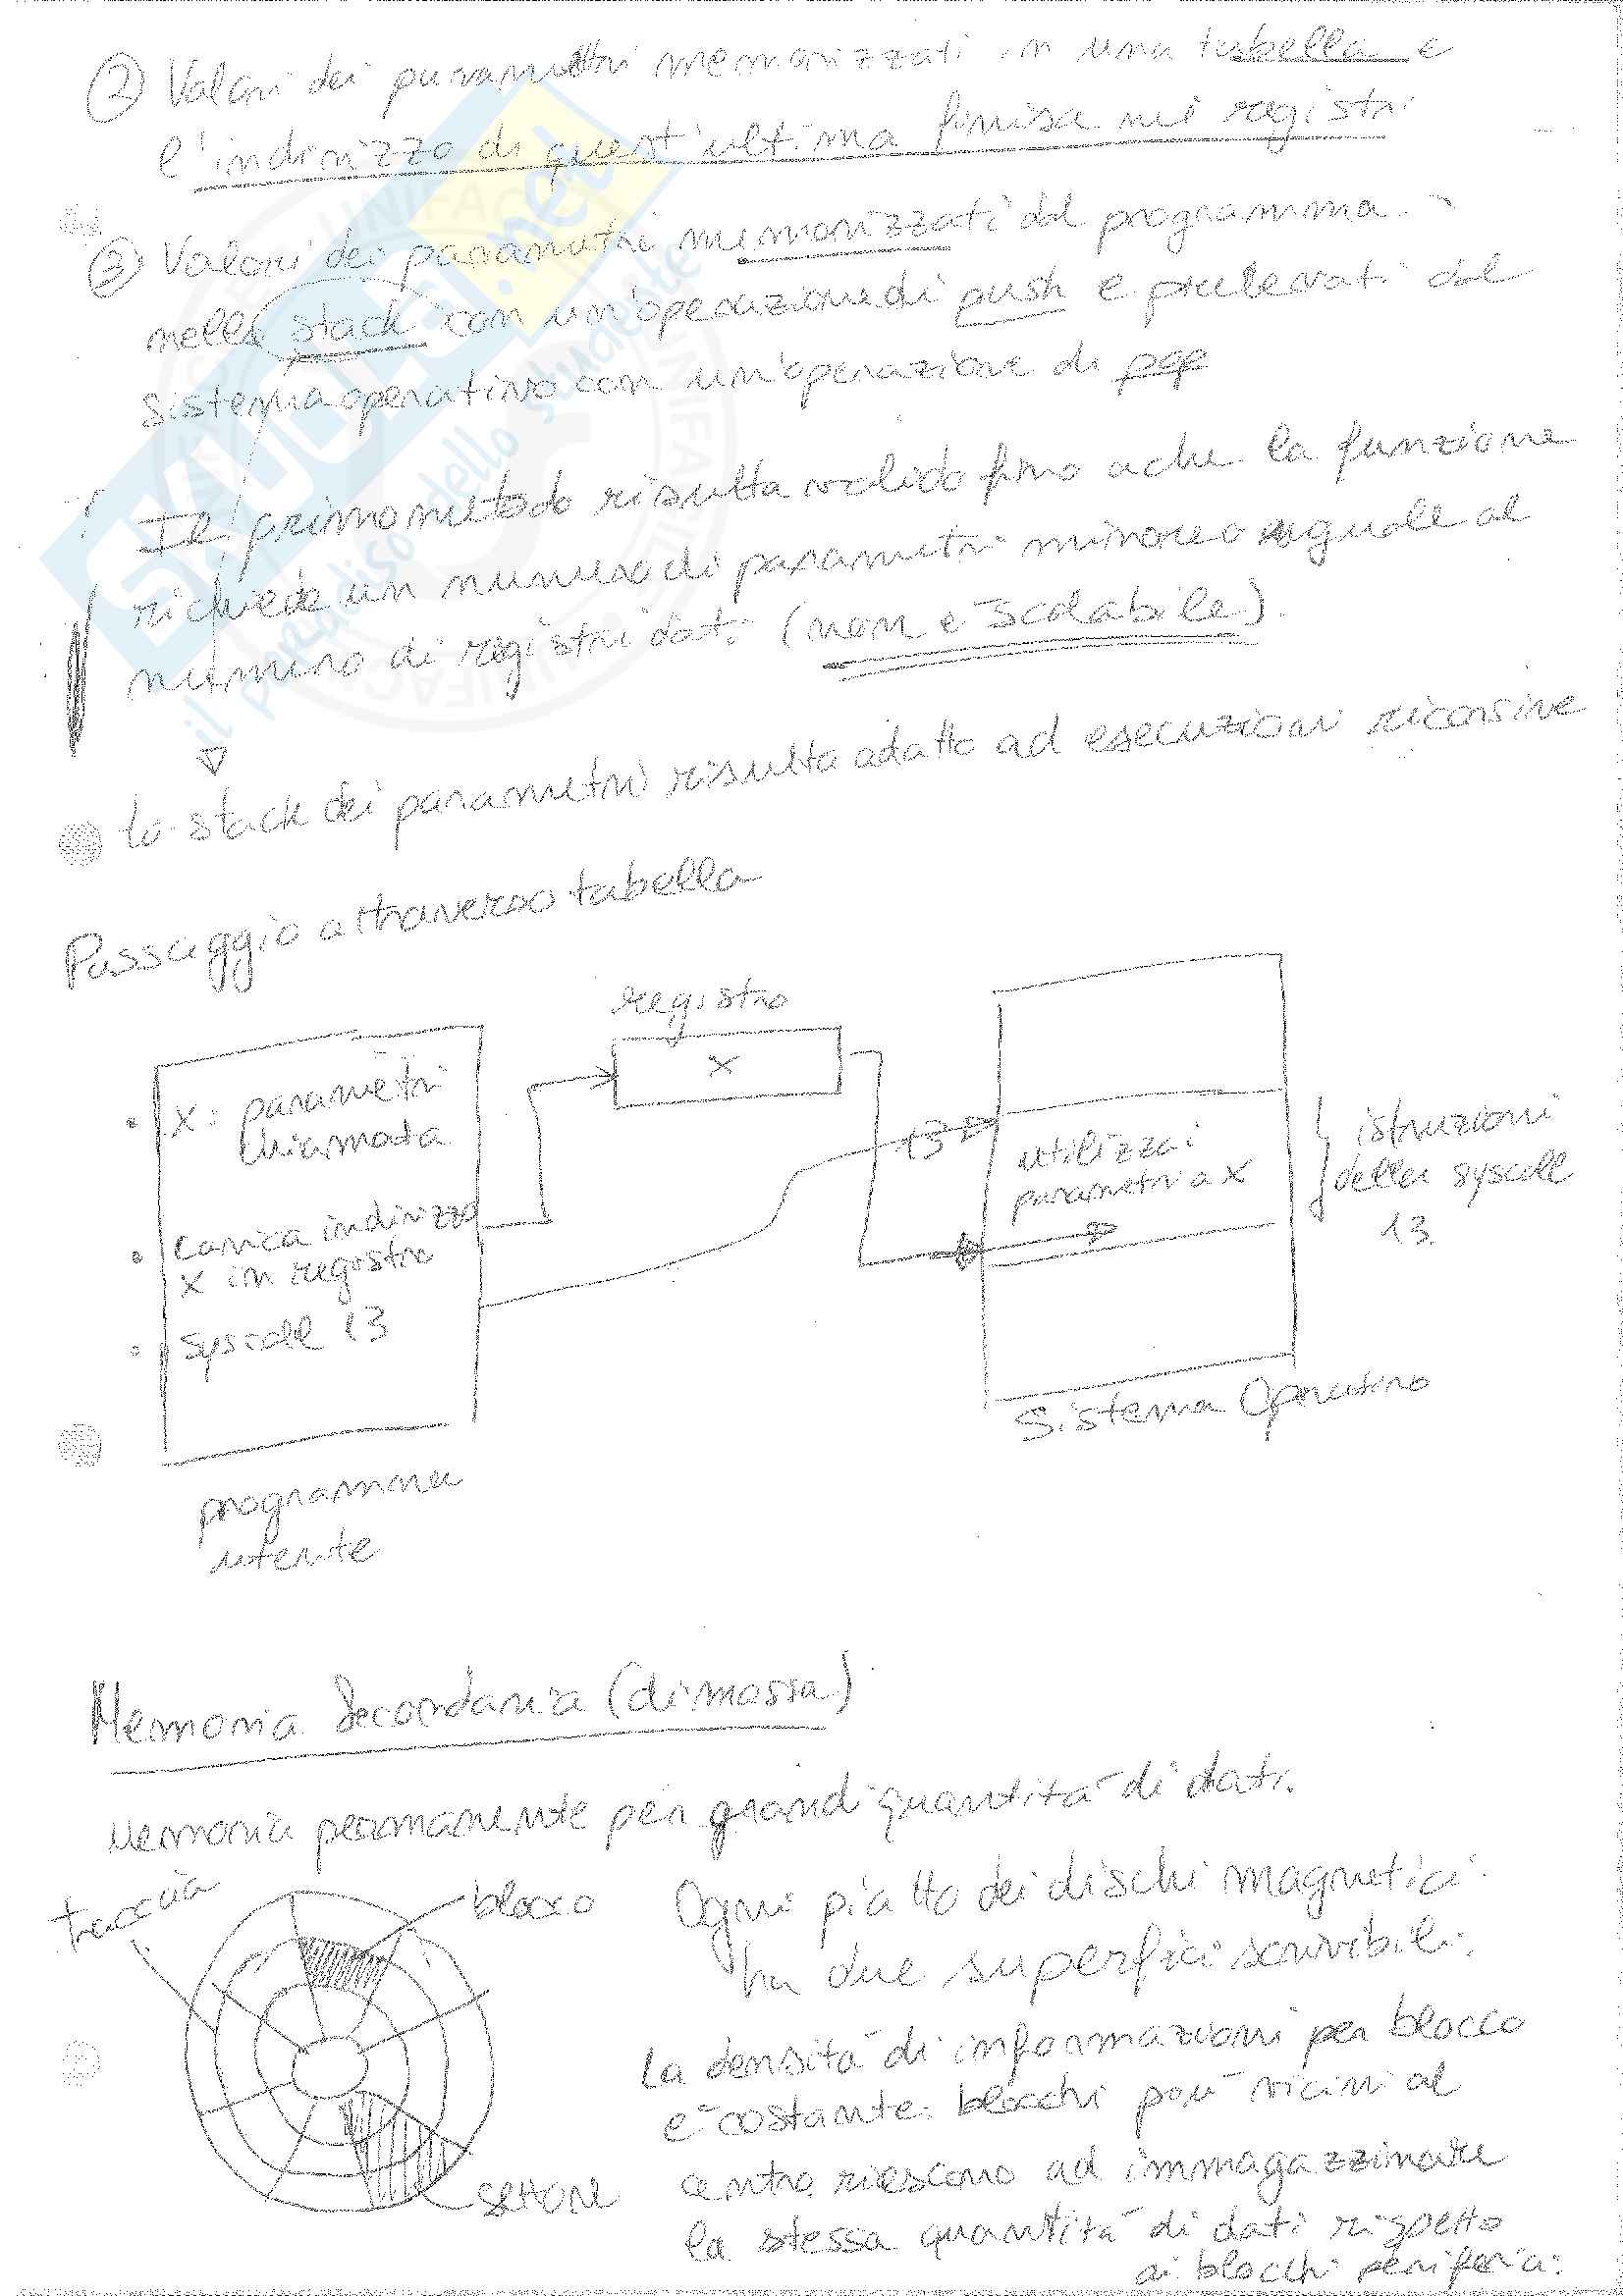 ② Valori dei parametri memorizzati in una tabella e
l'indirizzo di quest'ultima finisce nei registri
③ Valori dei parametri memorizzati dal programma
nello stack con un'operazione di push e prelevati dal
sistema operativo con un'operazione di pop
Il primo metodo risulta valido fino a che la funzione
richiede un numero di parametri minore o uguale al
numero di registri dati (non è scalabile).
Lo stack dei parametri risulta adatto ad esecuzioni ricorsive
Passaggio attraverso tabella
registro
X
• X: parametri
chiamata
• Carica indirizzo
X in registro
• Syscall 13
programma
utente
13
utilizza i
parametri a X
istruzioni
della syscall
13.
Sistema Operativo
Memoria Secondaria (di massa)
Memoria permanente per grandi quantità di dati.
traccia
blocco
settore
Ogni piatto dei dischi magnetici
ha due superfici scrivibili.
La densità di informazioni per blocco
è costante: blocchi più vicini al
centro riescono ad immagazzinare
la stessa quantità di dati rispetto
ai blocchi periferici.
SKUOLA.net
il paradiso dello studente